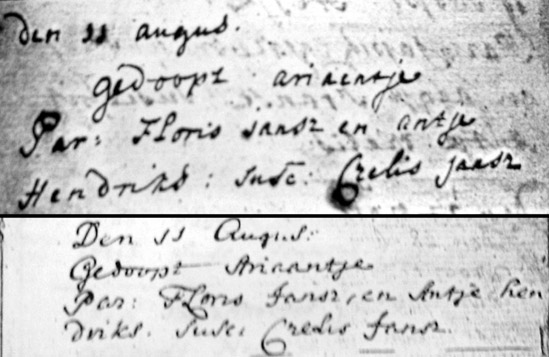 den 11 augus.
gedoopt ariaentje
Par: Floris jansz en antje
Hendriks: susc: Crelis jansz
Den 11 Augus:
Gedoopt Ariaantje
Par: Floris Jansz, en Antje hen
driks. Susc: Crelis Jansz.